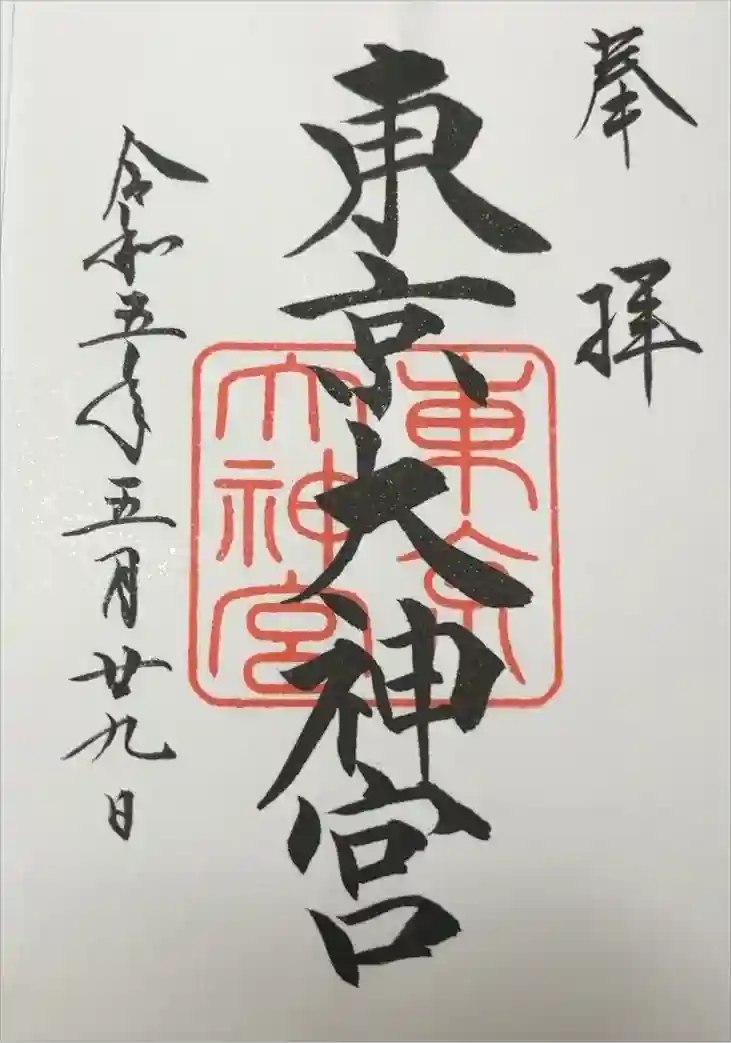 奉拝
東京大神宮
東京
大神宮
令和五年五月廿九日